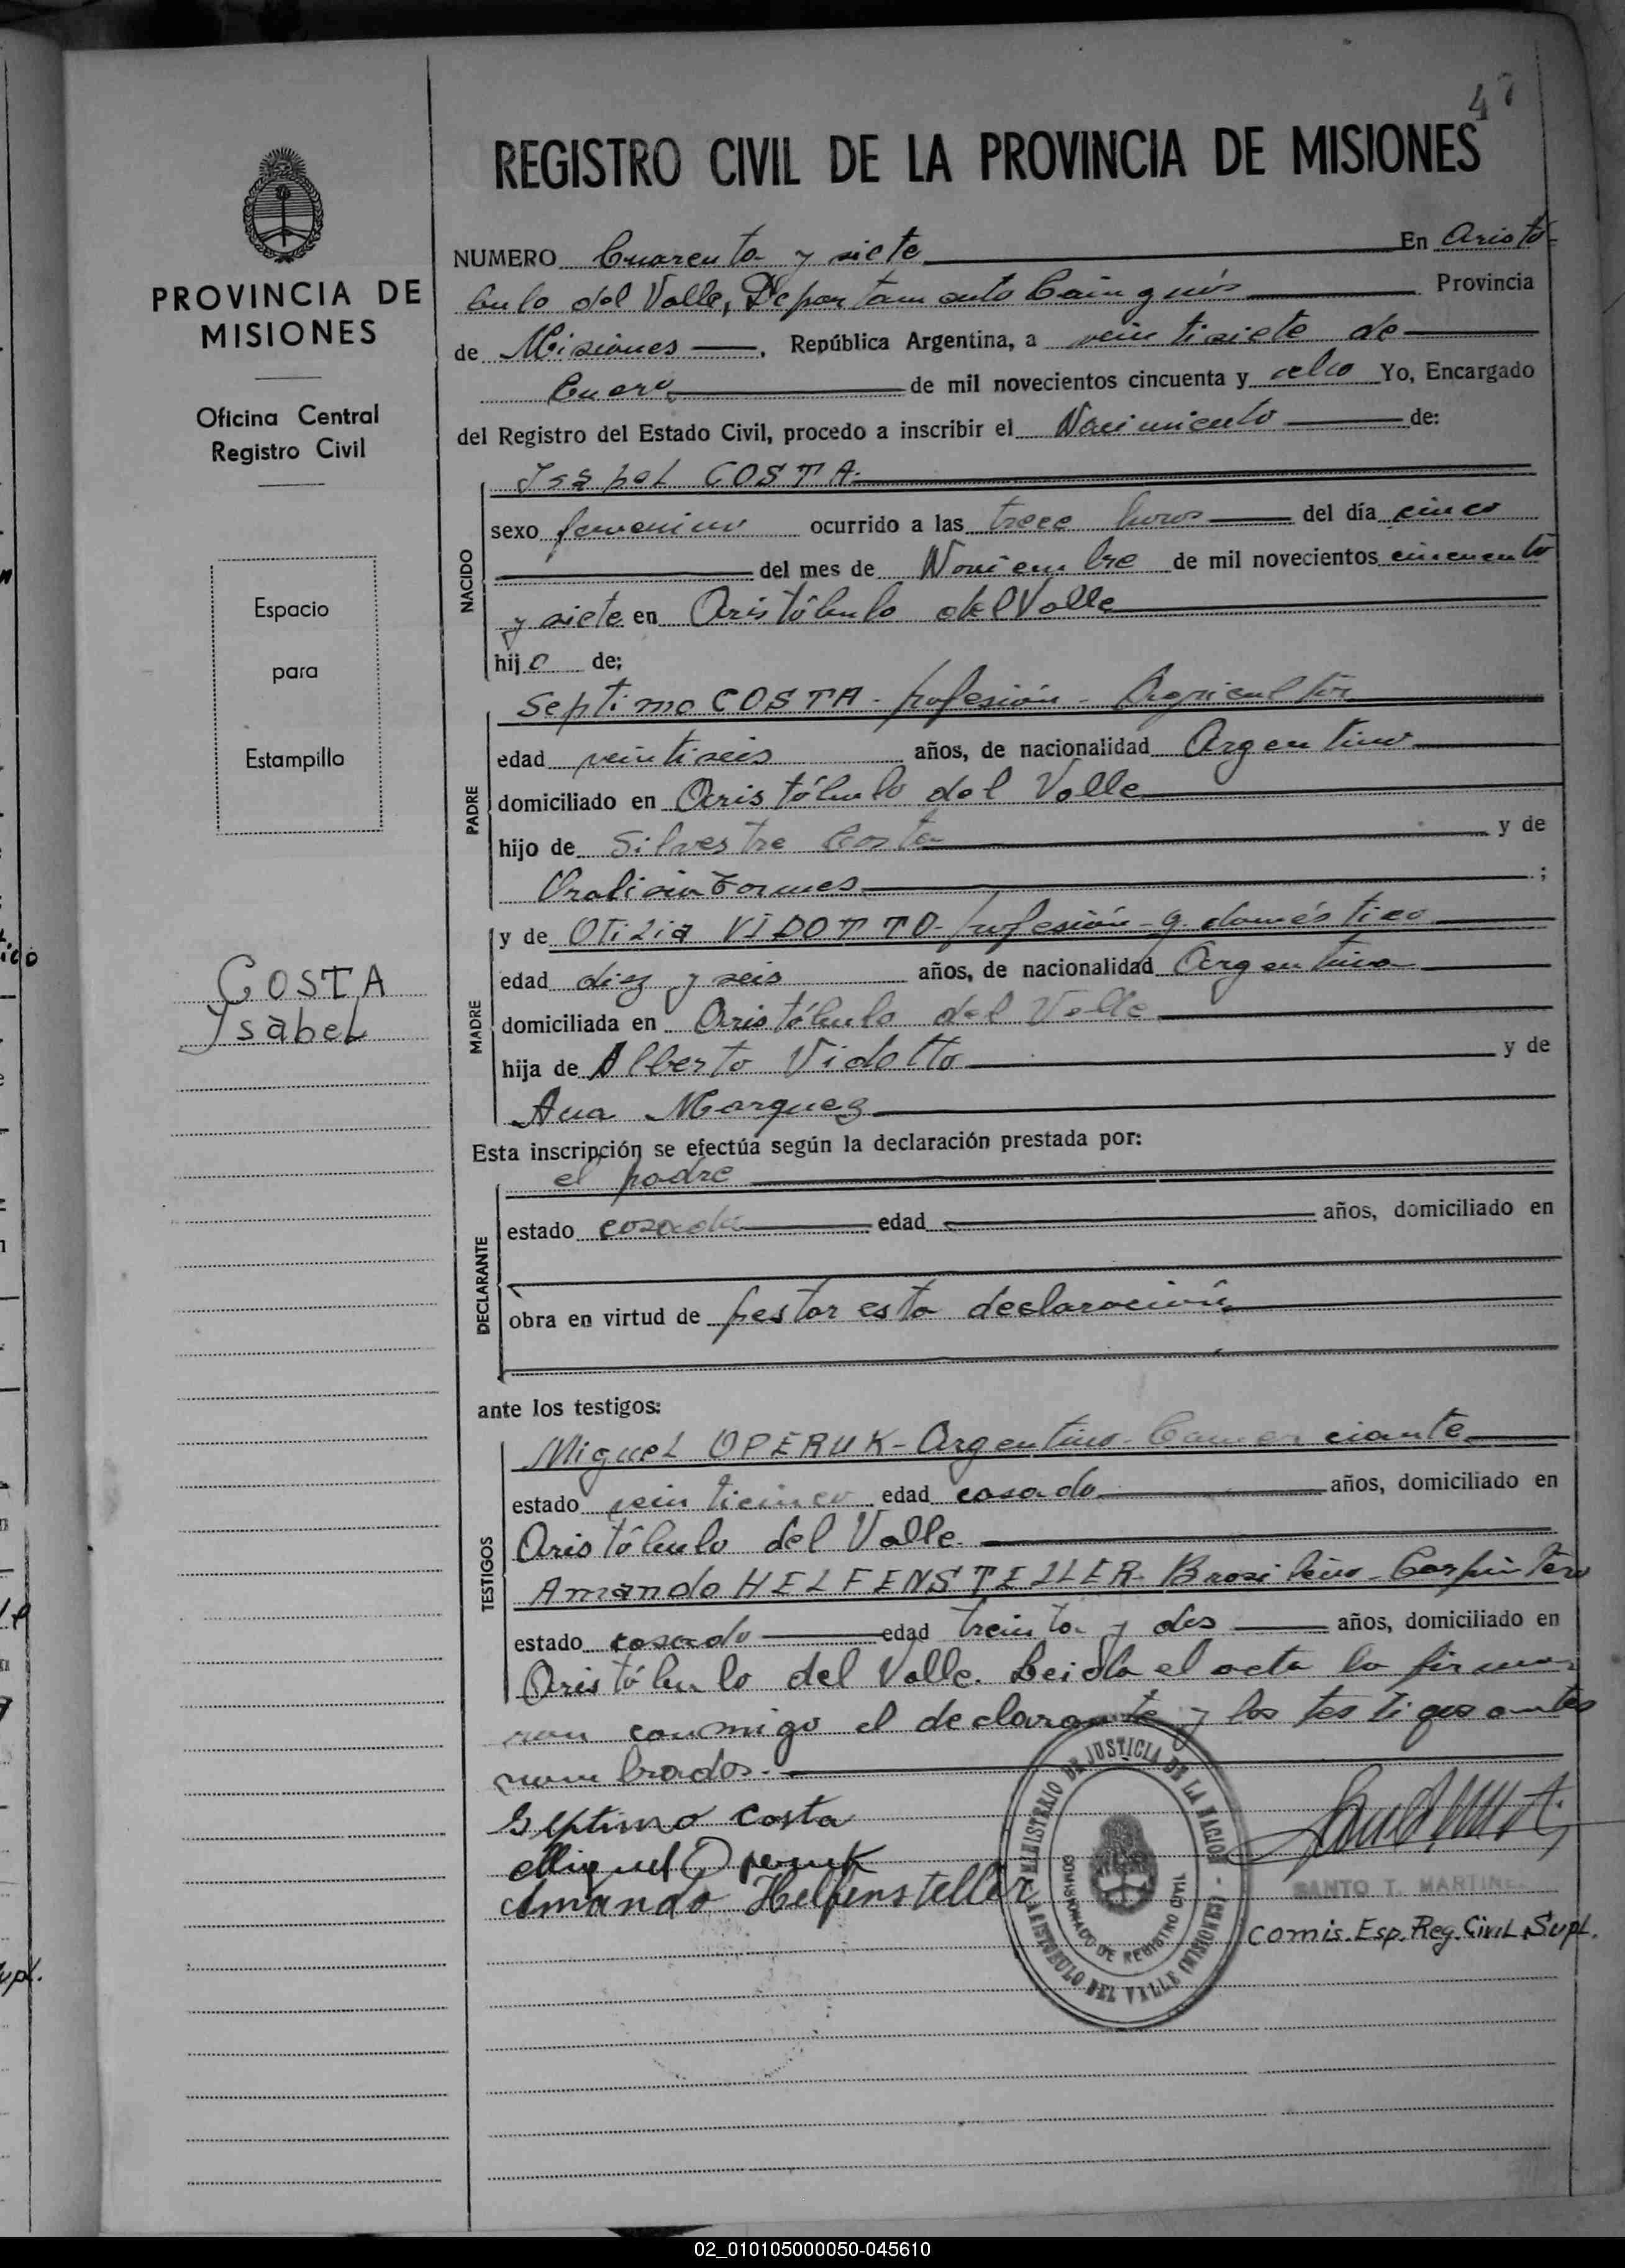 47
REGISTRO CIVIL DE LA PROVINCIA DE MISIONES
PROVINCIA DE
MISIONES
Oficina Central
Registro Civil
Espacio
para
Estampilla
COSTA
Ysabel
NUMERO Cuarenta y siete En Aristó-
bulo del Valle, Departamento Cainguás Provincia
de Misiones, República Argentina, a veintisiete de
Enero de mil novecientos cincuenta y ocho Yo, Encargado
del Registro del Estado Civil, procedo a inscribir el Nacimiento de:
NACIDO
Ysabel COSTA
sexo femenino ocurrido a las trece horas del día cinco
del mes de Noviembre de mil novecientos cincuenta
y siete en Aristóbulo del Valle
hija de:
PADRE
Septimo COSTA - profesión - Agricultor
edad veintiseis años, de nacionalidad Argentino
domiciliado en Aristóbulo del Valle
hijo de Silvestre Costa y de
;
MADRE
y de Otilia VIDOTTO - profesión - q. doméstico
edad diez y seis años, de nacionalidad Argentina
domiciliada en Aristóbulo del Valle
hija de Alberto Vidotto y de
Ana Marquez
Esta inscripción se efectúa según la declaración prestada por:
DECLARANTE
el padre
estado casado edad años, domiciliado en
obra en virtud de pestar esta declaración
ante los testigos:
TESTIGOS
Miguel OPERUK - Argentino - Comerciante
estado veinticinco edad casado años, domiciliado en
Aristóbulo del Valle.
Amando HELFENSTELLER - Brasileño - Carpintero
estado casado edad treinta y dos años, domiciliado en
Aristóbulo del Valle. Leida el acta la firma-
ron conmigo el declarante y los testigos antes
nombrados.-
Septimo Costa
Miguel Operuk
Amando Helfensteller
MINISTERIO DE JUSTICIA DE LA NACION -
ARISTOBULO DEL VALLE (MISIONES)
COMISIONADO DE REGISTRO CIVIL
SANTO T. MARTINEZ
Comis. Esp. Reg. Civil Supl.
02_010105000050-045610